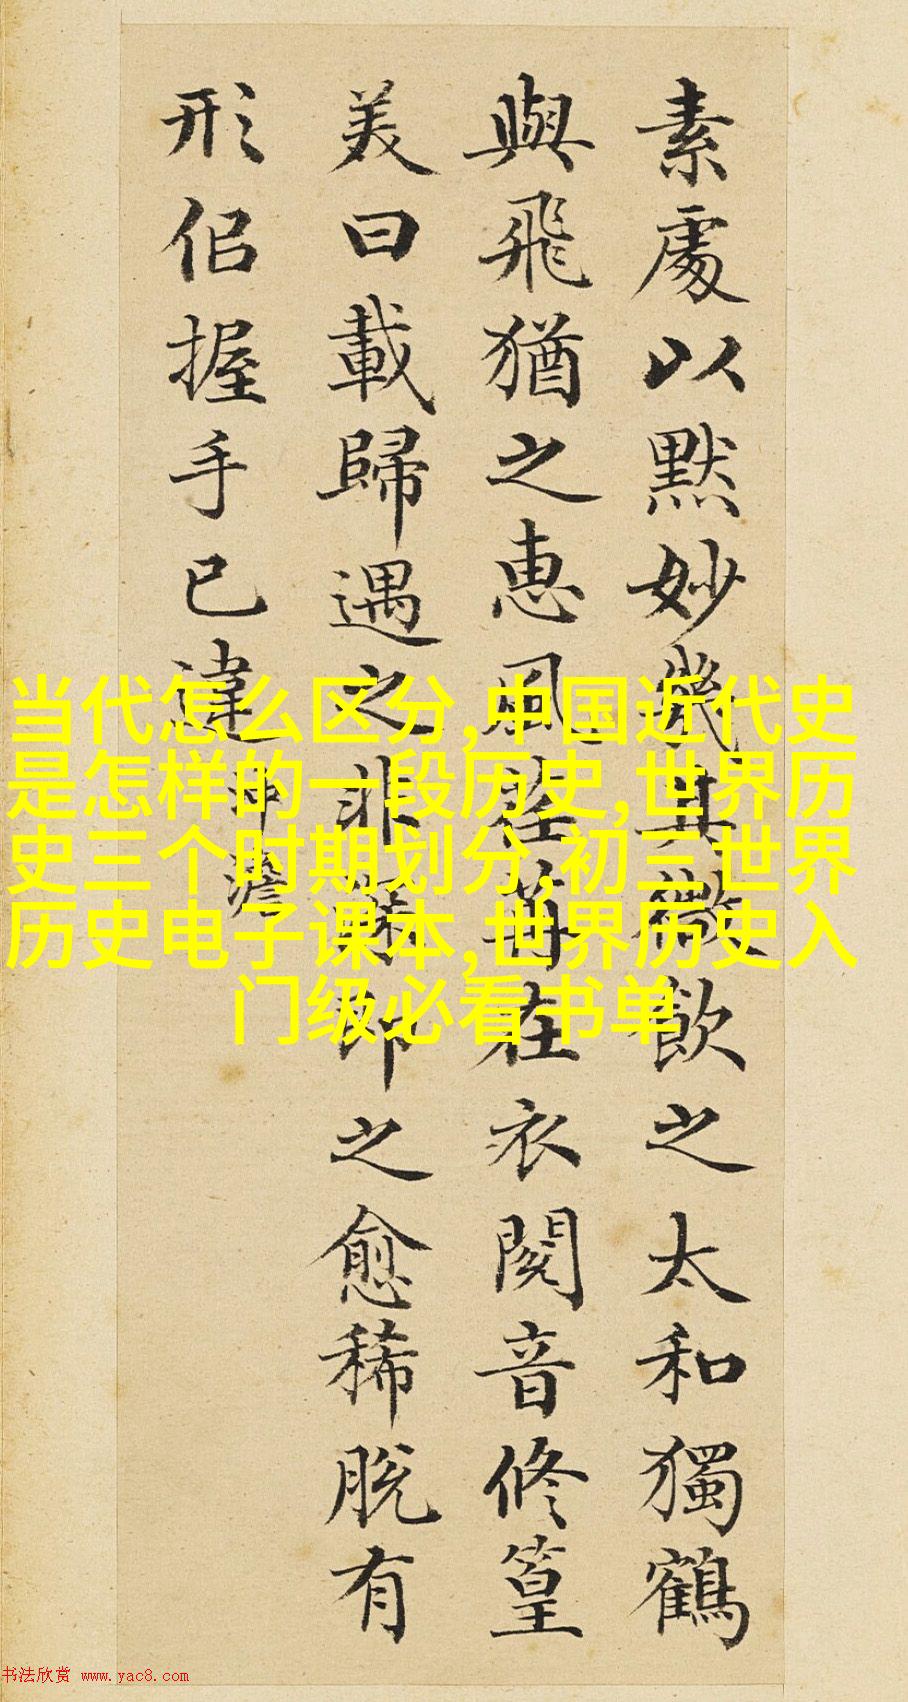 素處以默妙其微飲之太和獨鶴
與飛猶之惠風荏苒在衣閱音修篁
美曰載歸遇之非即之愈稀脫有
形佀握手已違
沖澹
当代怎么区分,中国近代史
是怎样的一段历史,世界历
史三个时期划分,初三世界
历史电子课本,世界历史入
门级必看书单
书法欣赏 www.yac8.com